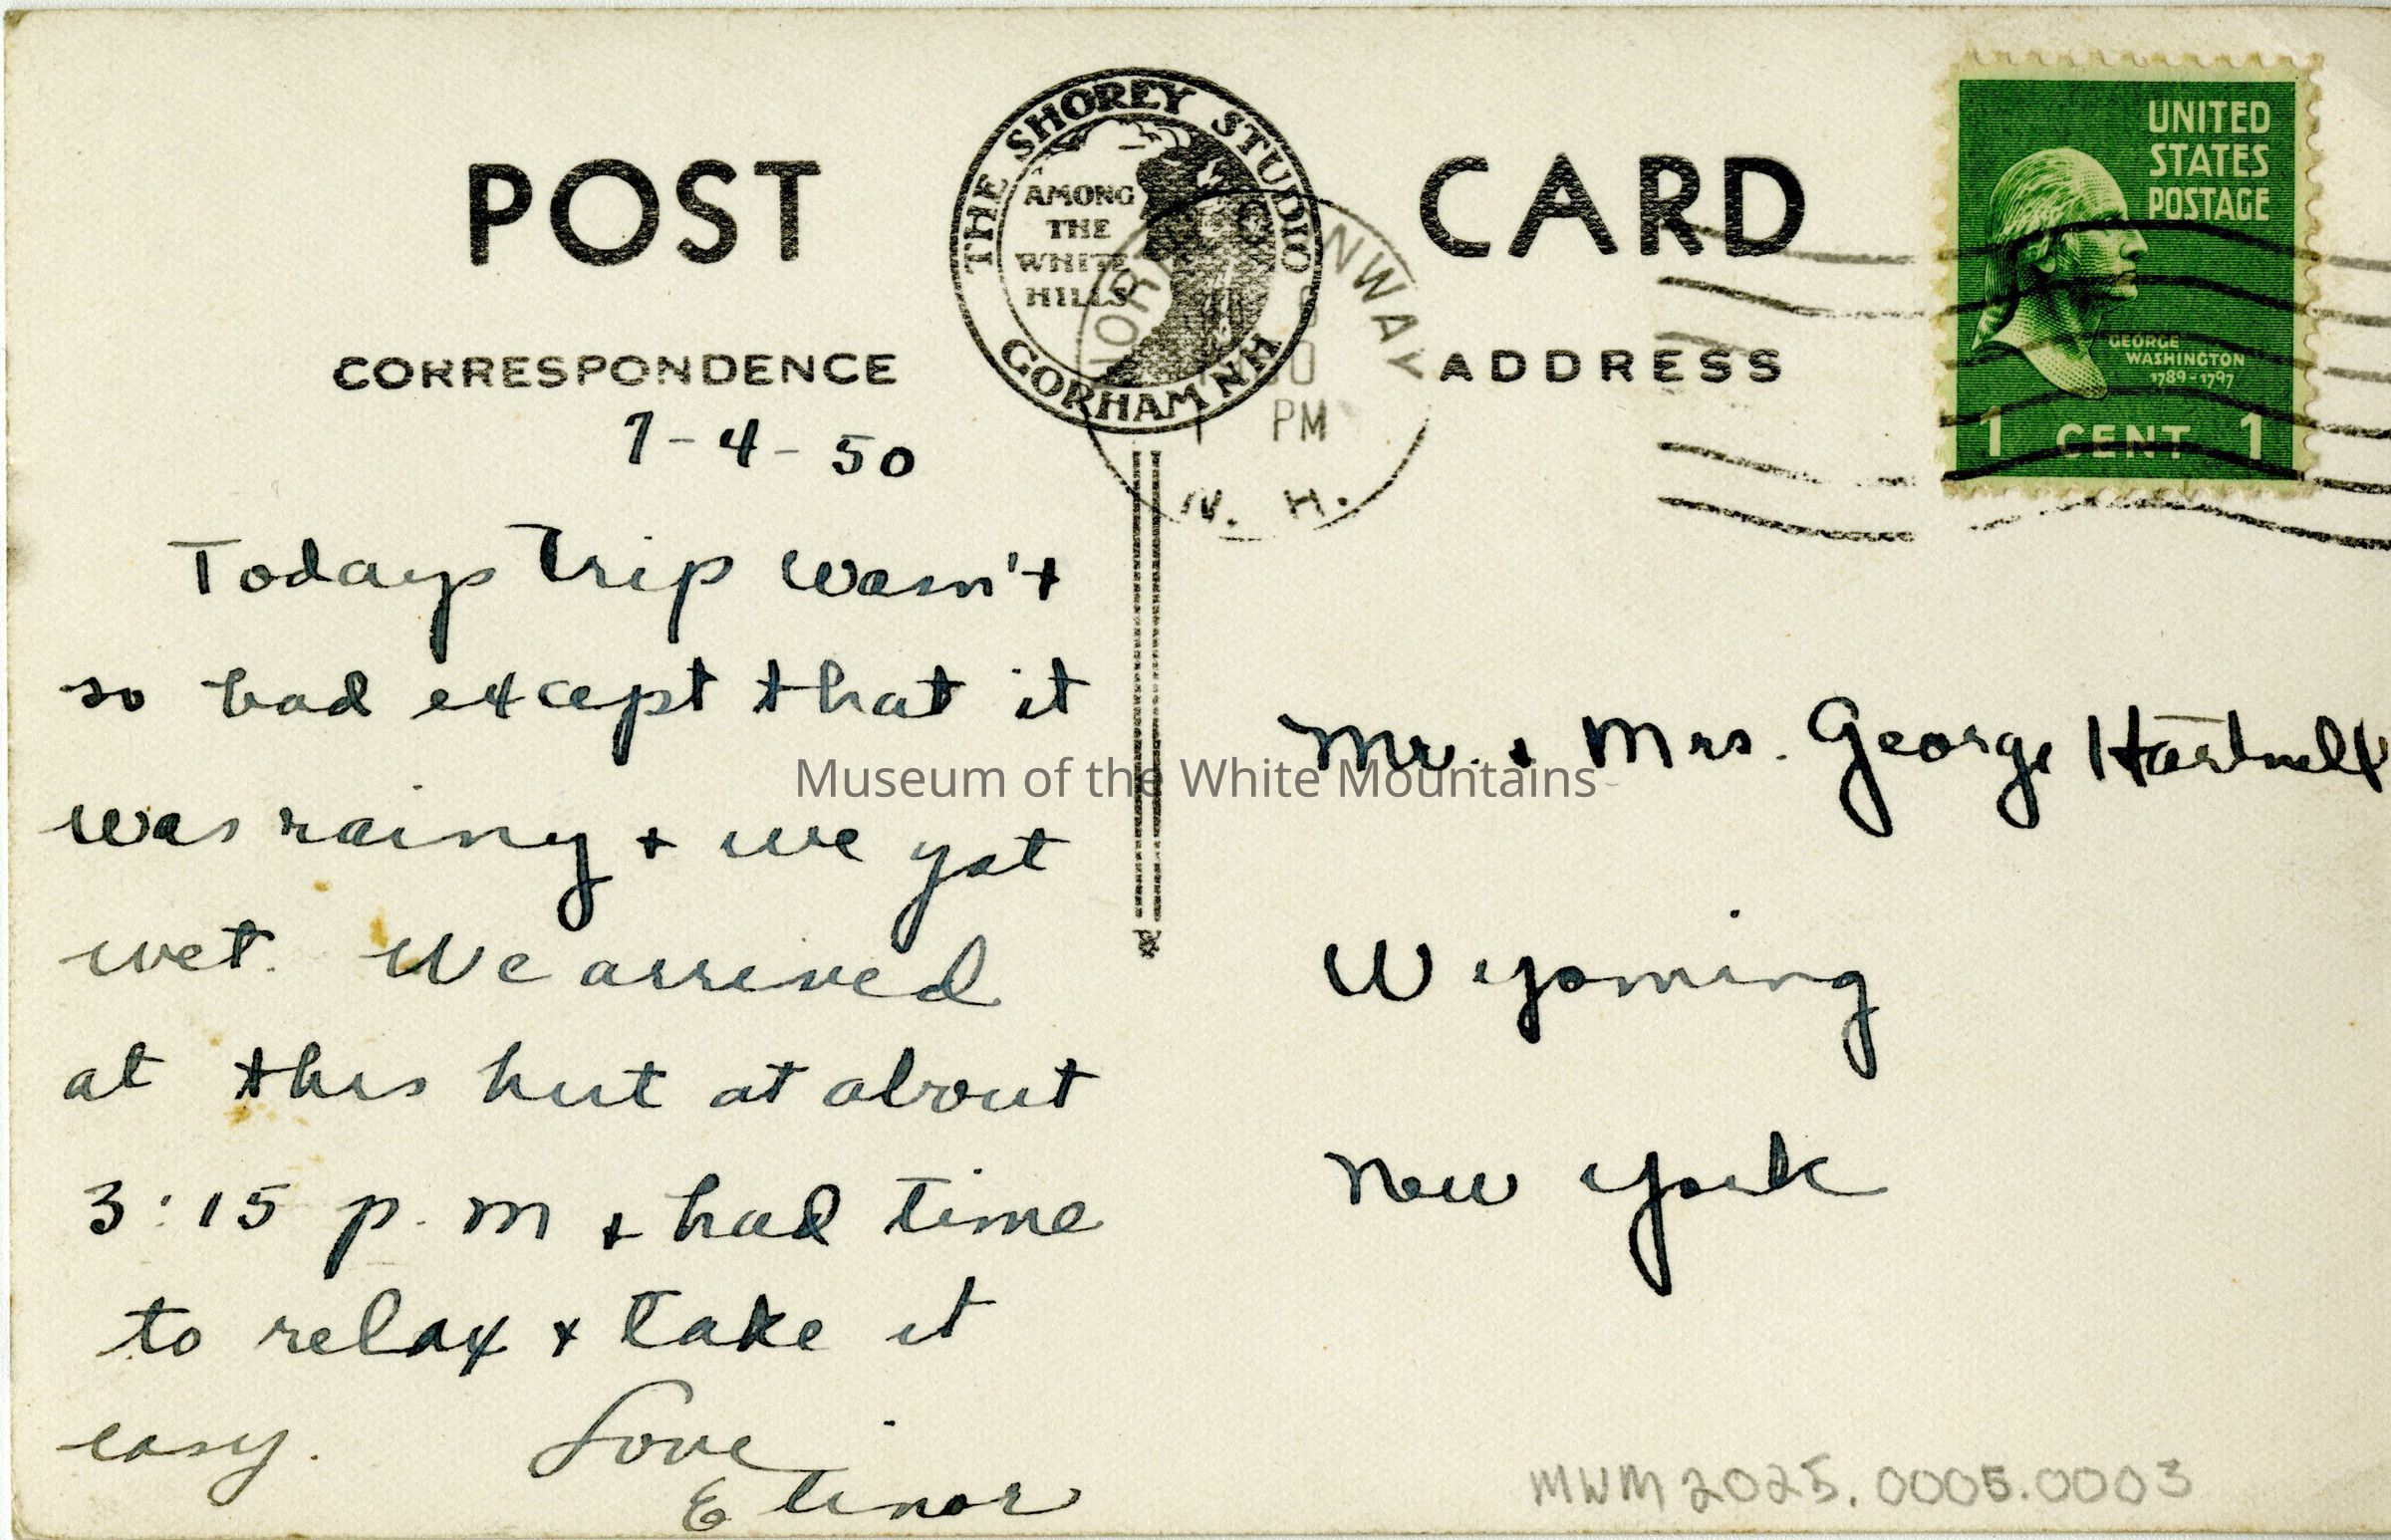 POST CARD
THE SHOREY STUDIO
AMONG
THE
WHITE
HILLS
GORHAM NH
CORRESPONDENCE
ADDRESS
NWAY
PM
N. H.
UNITED
STATES
POSTAGE
GEORGE
WASHINGTON
1789-1797
1 CENT 1
7-4-50
Todays trip wasn't
so bad except that it
was rainy + we got
wet. We arrived
at this hut at about
3:15 p.m + had time
to relax + take it
easy. Love
Elinor
Mr. + Mrs. George Hartnett
Wyoming
New York
Museum of the White Mountains
MWM 2025.0005.0003